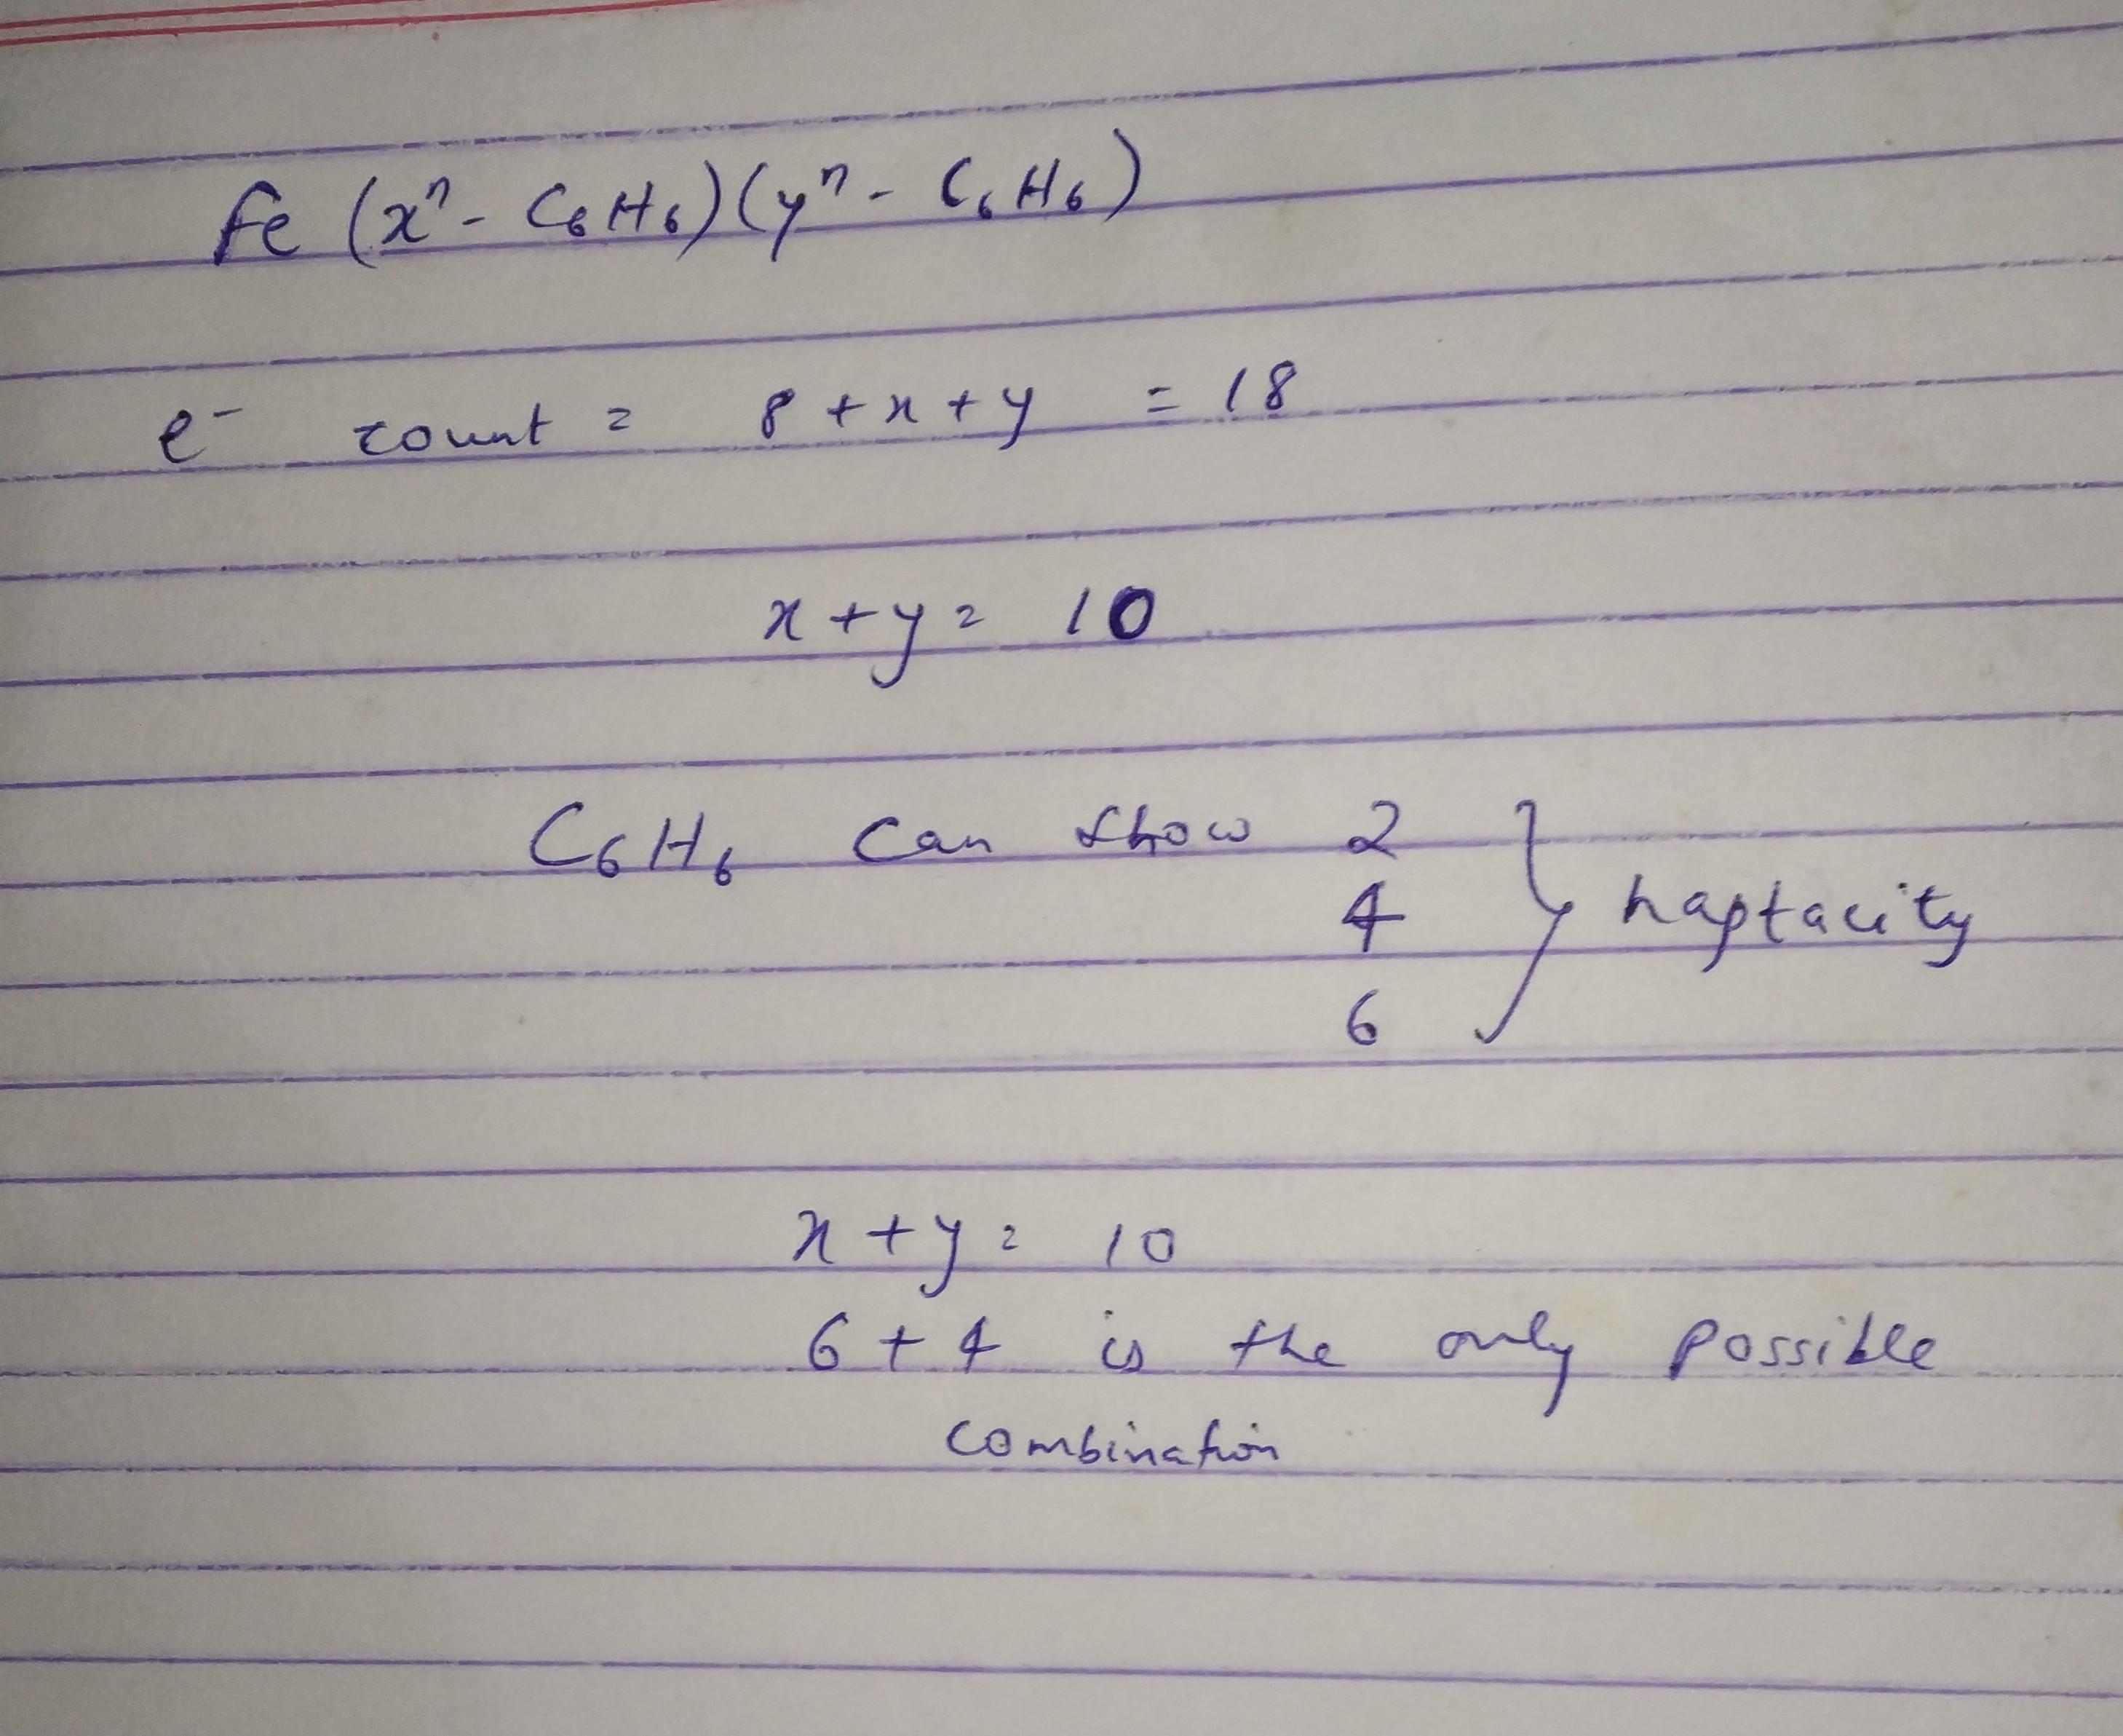 Fe (xⁿ - C₆H₆)(yⁿ - C₆H₆)
e⁻ count = 8 + x + y = 18
x + y = 10
C₆H₆ can show 2
4 } haptacity
6
x + y = 10
6 + 4 is the only possible
combination